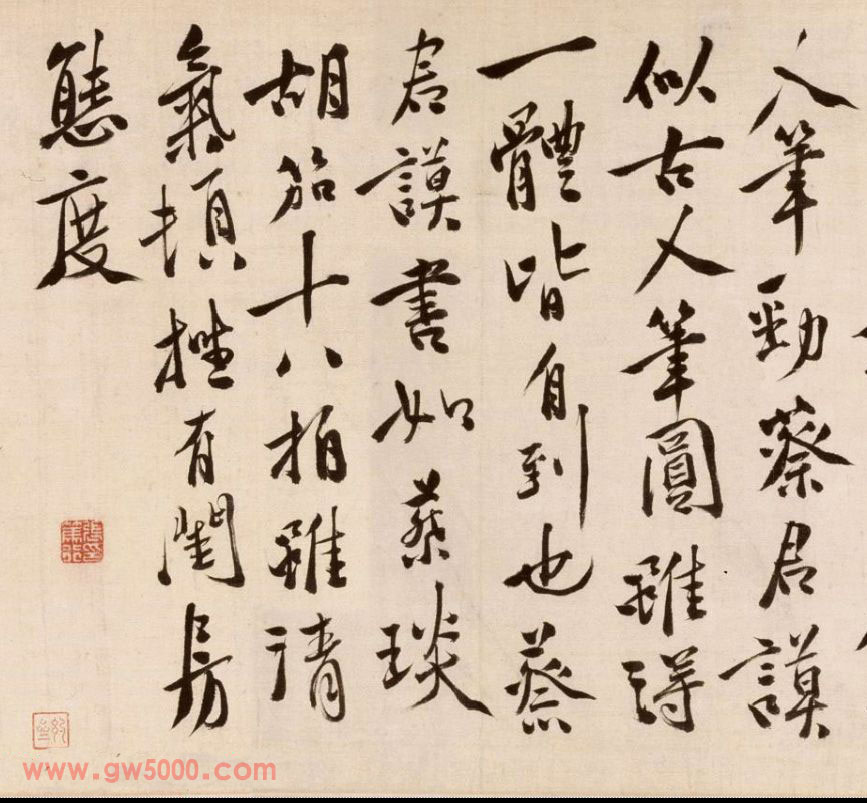 人筆勁蔡君謨
似古人筆圓雖得
一體皆自到也蔡
君謨書如蔡琰
胡笳十八拍雖清
氣頓挫有閨房
態度
www.gw5000.com